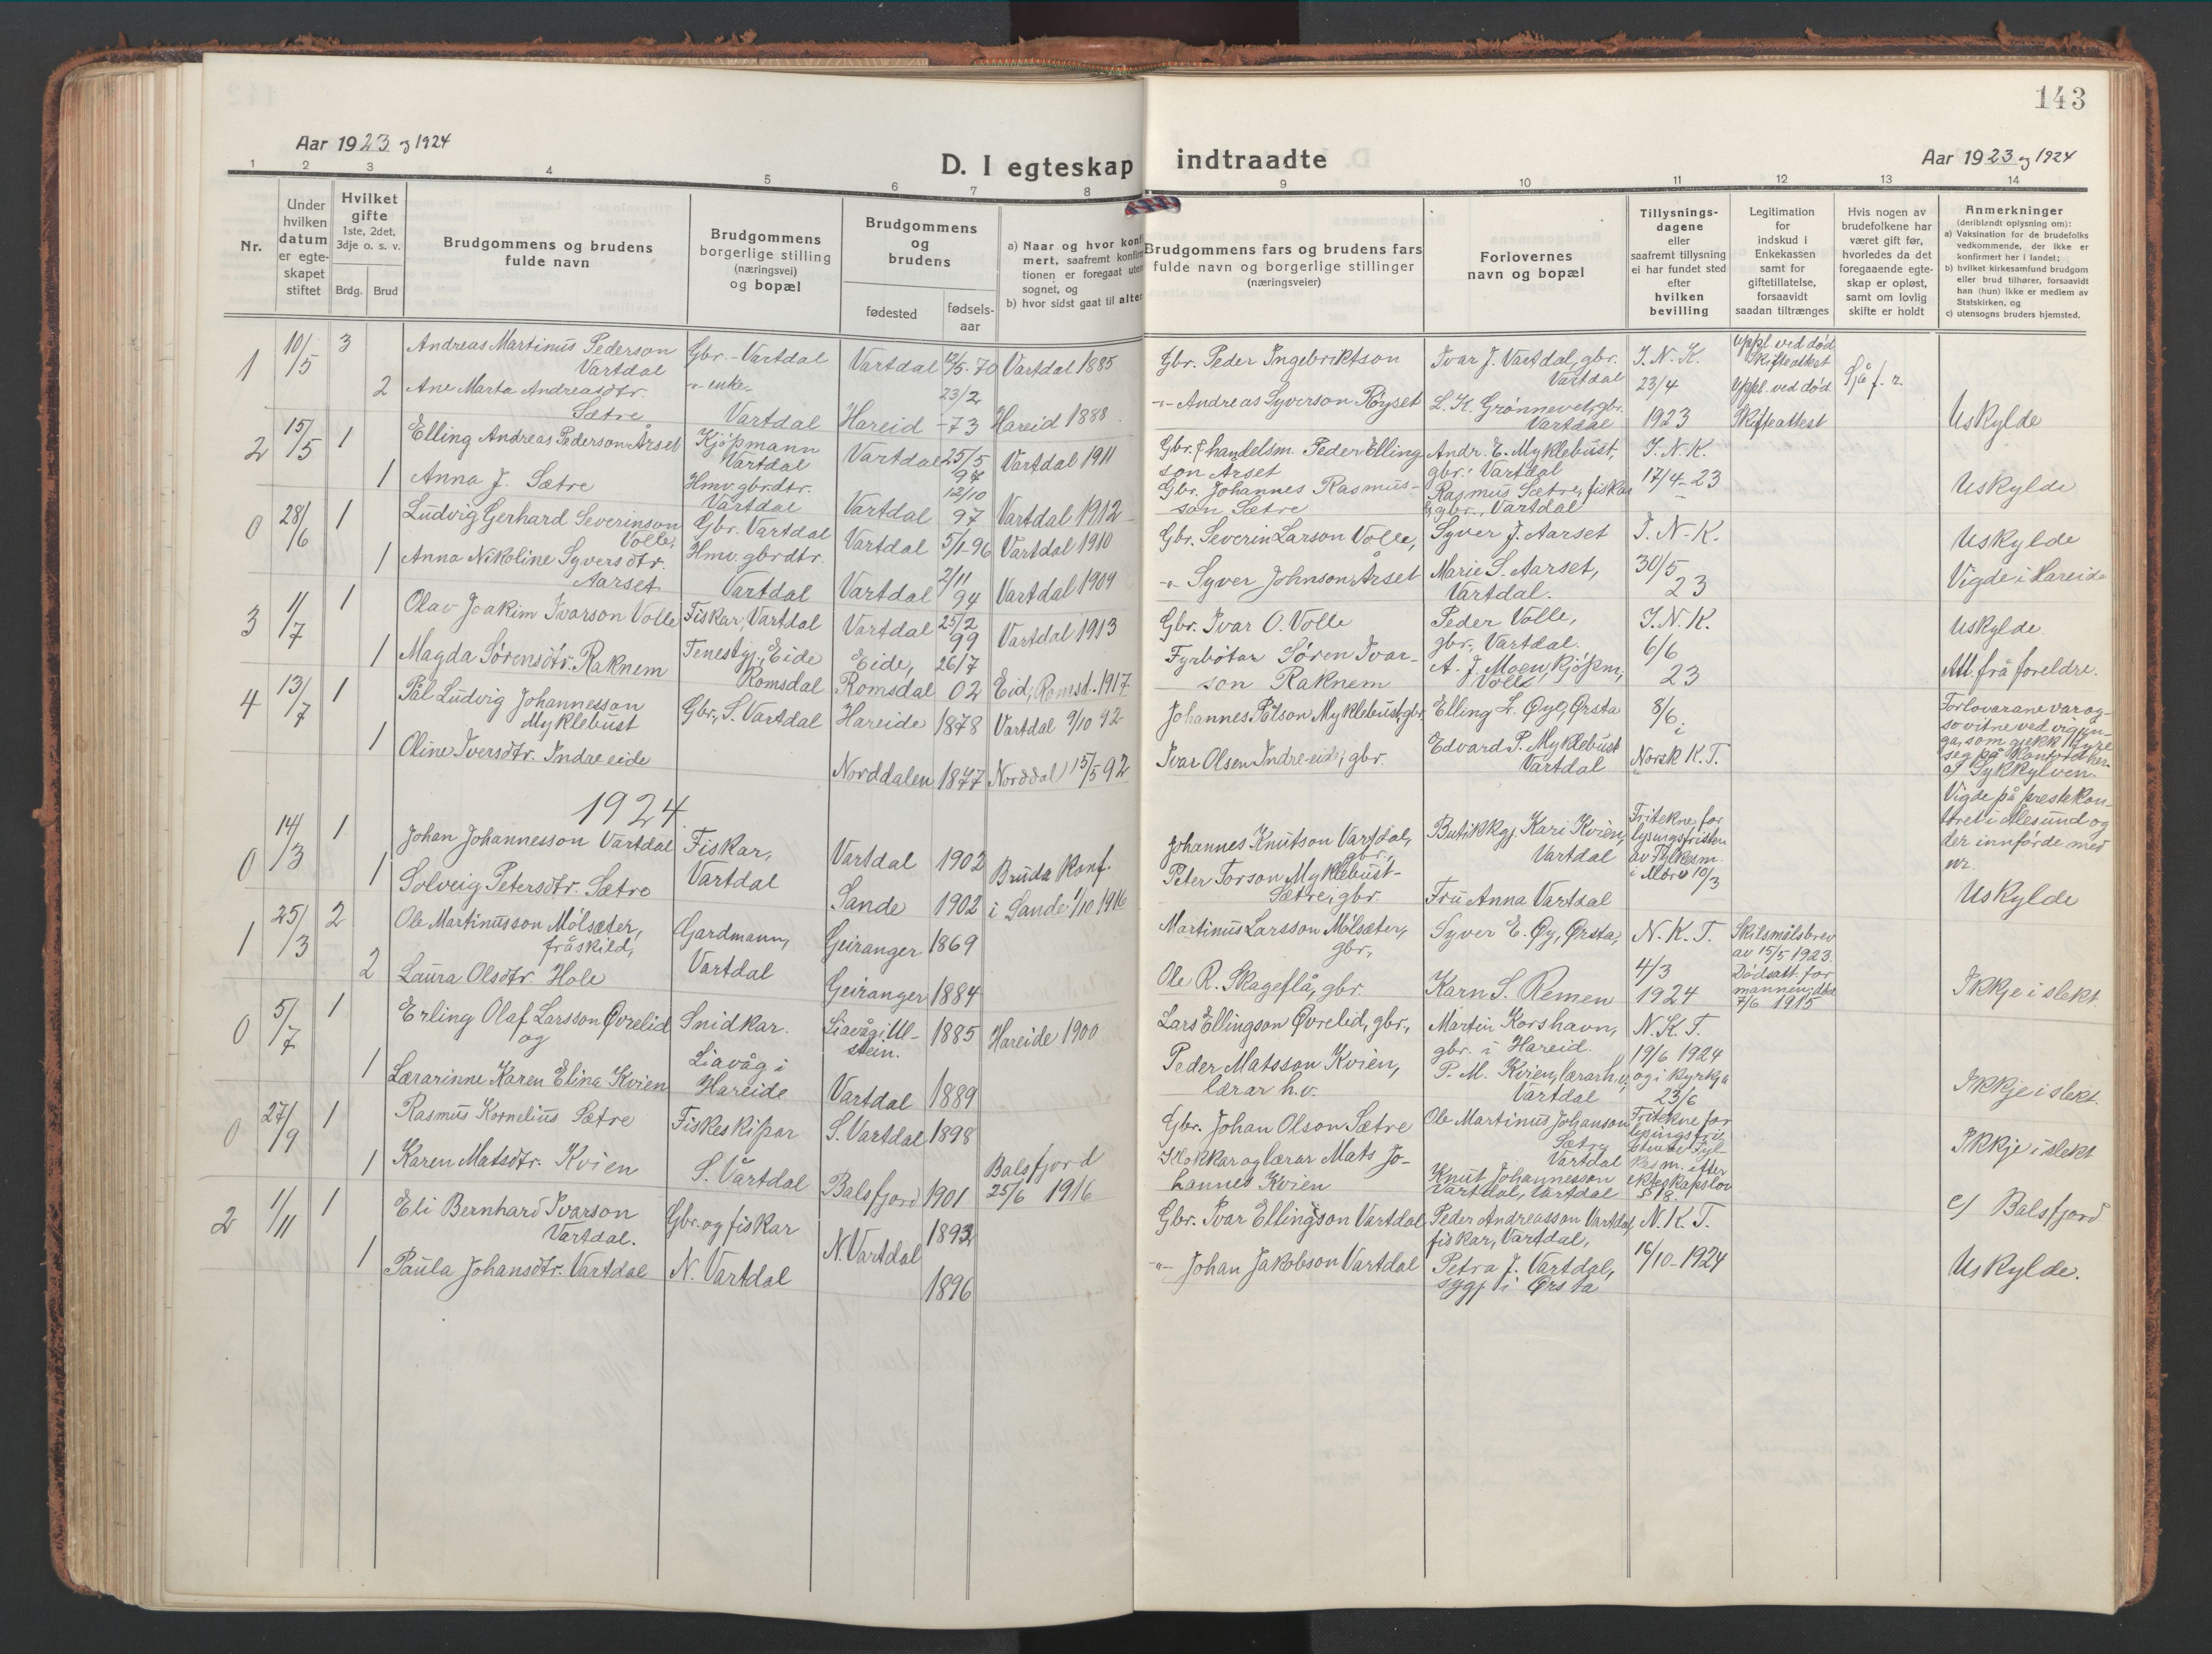 143
Aar 1923 og 1924
D. I egteskap indtraadte
Aar 1923 og 1924
1 2 3 4 5 6 7 8 9 10 11 12 13 14
Nr.
Under
hvilken
datum
er egte-
skapet
stiftet
Hvilket
gifte
1ste, 2det,
3dje o. s. v.
Brdg. Brud
Brudgommens og brudens
fulde navn
Brudgommens
borgerlige stilling
(næringsvei)
og bopæl
Brudgommens
og
brudens
fødested
fødsels-
aar
a) Naar og hvor konfi
mert, saafremt konfirm
tionen er foregaat uten
sognet, og
b) hvor sidst gaat til alter
Brudgommens fars og brudens fars
fulde navn og borgerlige stillinger
(næringsveier)
Forlovernes
navn og bopæl
Tillysnings-
dagene
eller
saafremt tillysning
ei har fundet sted
efter
hvilken
bevilling
Legitimation
for
indskud i
Enkekassen
samt for
giftetillatelse,
forsaavidt
saadan tiltrænges
Hvis nogen av
brudefolkene har
været gift før,
hvorledes da det
foregaaende egte-
skap er opløst,
samt om lovlig
skifte er holdt
Anmerkninger
(deriblandt oplysning om):
a) Vaksination for de brudefolks
vedkommende, der ikke er
konfirmert her i landet;
b) hvilket kirkesamfund brudgom
eller brud tilhører, forsaavidt
han (hun) ikke er medlem av
Statskirken, og
c) utensogns bruders hjemsted.
1 10/5 3 Andreas Martinus Pederson
Vartdal
Gbr. - Vartdal
Vartdal 12/5-70 Vartdal 1885
Gbr. Peder Ingebriktson
Ivar J. Vartdal, gbr.
Vartdal
J. N. K.
23/4
1923
Uppl. ved død
Skifteattest
Sjå f. r.
2 Ane Marta Andreasdtr.
Sætre
-"- enke-
Vartdal
Hareid 23/2
-73 Hareid 1888
-"- Andreas Syverson Röyset
L. K. Grønnevet, gbr.
Vartdal
Uppl. ved død.
Skifteattest
Uskylde
2 15/5 1 Elling Andreas Pederson Årset
Kjöpmann
Vartdal
Vartdal 25/5
97 Vartdal 1911
Gbr. & handelsm. Peder Elling-
son Årset
Andr. E. Myklebust,
gbr. Vartdal
J. N. K.
17/4-23
1 Anna J. Sætre
Hmv. gbr.dtr.
Vartdal
Vartdal 12/10
97 Vartdal 1912
Gbr. Johannes Rasmus-
son Sætre
Rasmus Sætre, fiskar
& gbr., Vartdal
Uskylde
0 28/6 1 Ludvig Gerhard Severinson
Volle,
Gbr. Vartdal
Vartdal 5/1-96 Vartdal 1910
Gbr. Severin Larson Volle,
Syver J. Aarset
J. N. K.
30/5
23
Uskylde
1 Anna Nikoline Syversdtr.
Aarset
Hmv. gbrdtr.
Vartdal
Vartdal 2/11
94 Vartdal 1909
-"- Syver Johnson Årset
Marie S. Aarset,
Vartdal.
Vigde i Hareid
3 1/7 1 Olav Joakim Ivarson Volle
Fiskar, Vartdal
Vartdal 25/2
99 Vartdal 1913
Gbr. Ivar O. Volle
Peder Volle,
gbr., Vartdal.
J. N. K.
6/6
23
Uskylde
1 Magda Sørensdtr. Raknem
Tenestgj., Eide
Romsdal
Eide,
Romsdal 26/7
02 Eid, Romsd. 1917
Fyrbötar Søren Ivar-
son Raknem
A. J. Moen, kjöpm,
Volle
Att. frå foreldre.
4 13/7 1 Pål Ludvig Johannesson
Myklebust
Gbr., S. Vartdal
Hareide 1878 Vartdal 9/10 92
Johannes Pålson Myklebust, gbr.
Elling L. Øye, Ørsta
8/6 i
Norsk K. T.
Forlovarane var og-
so vitne ved vigjin-
ga, som gjekk fyre
seg på kontordher-
af Sykkylven.
1 Oline Iversdtr. Indreeide
Norddalen 1877 Norddal 15/5 92
Ivar Olsen Indre-eide, gbr.
Edvard P. Myklebust
Vartdal
1924
0 14/3 1 Johan Johannesson Vartdal
Fiskar,
Vartdal
Vartdal 1902
Bruda konf.
i Sande 1/10 1916
Johannes Knutson Vartdal,
gbr.,
Butikkgj. Kari Kvien,
Vartdal
Fritekne for
lysingsfristen
av Fylkesm.
i Møre 10/3
Vigde på prestekon-
toret i Ålesund og
der innförde med
nr.
1 Solveig Petersdtr. Sætre
Sande 1902
Peter Torson Myklebust-
Sætre, gbr.
Fru Anna Vartdal
Uskylde
1 25/3 2 Ole Martinusson Mölsæter,
fråskild,
Gardmann,
Vartdal
Geiranger 1869
Martinus Larsson Mölsæter,
gbr.,
Syver E. Øy, Ørsta,
N. K. T.
4/3
1924
Skilsmålsbrev
av 15/5 1923.
2 Laura Olsdtr. Hole
Geiranger 1884
Ole R. Skageflå, gbr.
Karn S. Remen
Dødsatt. for
mannen, død
7/6 1915
Ikkje i slekt
0 5/7 1 Erling Olaf Larsson Øvrelid
og
Snidkar.
Liavåg i
Hareide
Liavåg i Ul-
stein. 1885 Hareide 1900
Lars Ellingson Øvrelid, gbr.,
Martin Korshavn,
gbr. i Hareid.
N. K. T.
19/6 1924
og i kyrkja
23/6
1 Lærarinne Karen Elina Kvien
Vartdal 1889
Peder Matsson Kvien,
lærar h.v.
P. M. Kvien, lærar h.v,
Vartdal
Ikkje i slekt.
0 27/9 1 Rasmus Kornelius Sætre
Fiskeskipar
S. Vartdal
S. Vartdal 1898
Gbr. Johan Olson Sætre
Ole Martinus Johanson
Sætre
Vartdal
Fritekne for
lysingsfri-
sten av Fyl-
kesm. efter
ekteskapslov
§ 18.
Ikkje i slekt
1 Karen Matsdtr. Kvien
Balsfjord 1901
Balsfjord
25/6 1916
Klokkar og lærar Mats Jo-
hannes Kvien
Knut Johannesson
Vartdal, Vartdal
c) Balsfjord
2 1/11 1 Eli Bernhard Ivarson
Vartdal.
Gbr. og fiskar
N. Vartdal
N. Vartdal 1893
Gbr. Ivar Ellingson Vartdal
Peder Andreasson Vartdal,
fiskar, Vartdal,
N. K. T.
16/10-1924
1 Paula Johansdtr. Vartdal
1896
-"- Johan Jakobson Vartdal
Petra J. Vartdal,
sygj. i Ørsta
Uskylde.